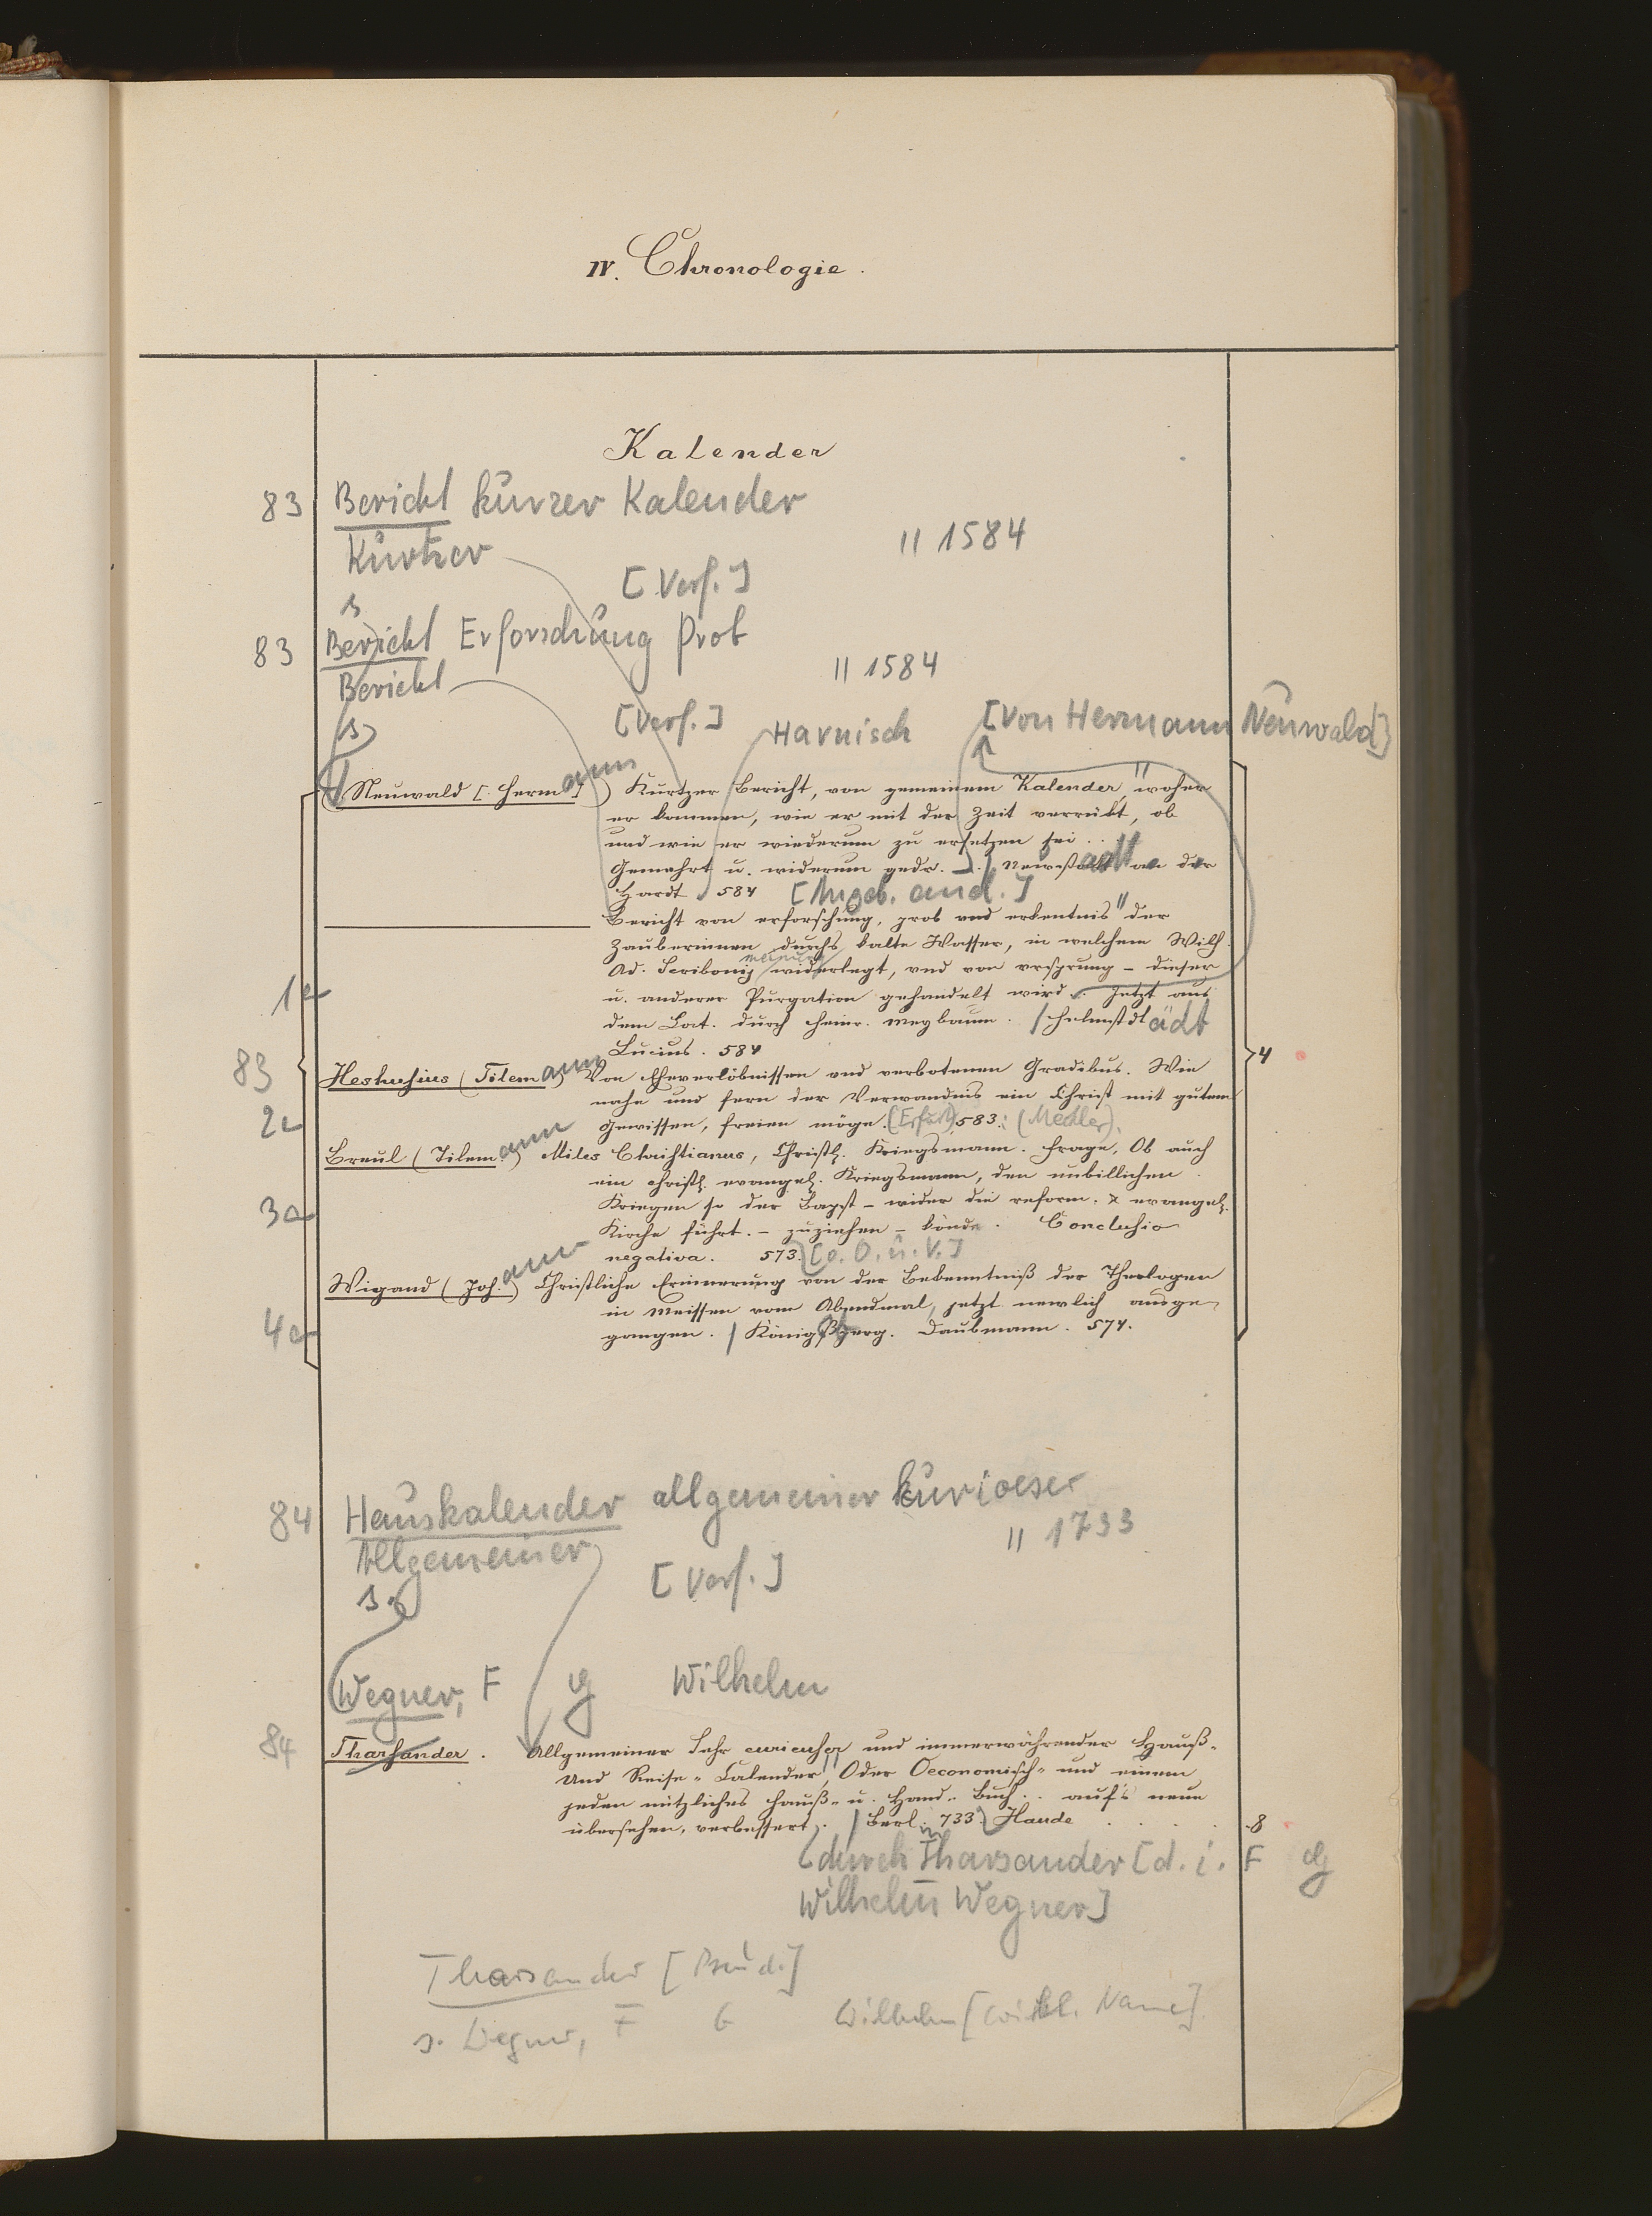 IV. Chronologie.
Kalender
83 Bericht kurzer Kalender
Kurtzer
|| 1584
[Verf.]
s
83 Bericht Erforschung Prob
|| 1584
Bericht
s
[Verf.] Harnisch [von Hermann Neuwald]
Neuwald [Hermann] Kurtzer Bericht, von gemeinem Kalender, || woher
er kommen, wie er mit der Zeit verrükt, ob
und wie er wiederum zu ersetzen sei ..
Gemehrt u. widerum gedr. | Neustadt an der
Hardt 584 [Angeb. and.]
Bericht von erforschung, prob und erkentnis || der
Zauberinnen durchs kalte Wasser, in welchem Wilh.
Ad. Scribonij meinung widerlegt, und von ursprung – dieser
1a u. anderer Purgation gehandelt wird. Jetzt aus
dem Lat. durch Heinr. Meybaum. | Helmstädt
Lucius. 584
83 Heshusius (Tilemann) Von Eheverlöbnissen und verbotenen Gradibus. Wie 4
nahe und fern der Verwandnis ein Christ mit gutem
2a Gewissen, freien möge. (Erfurt) 583. (Medler).
Breul (Tilemann) Miles Christianus, Christl. Kriegsmann. Frage, Ob auch
ein christl. evangel. Kriegsmann, den unbillichen
3a Kriegen so der Bapst – wider die reform. & evangel.
Kirche führt. – zuziehen – könde. Conclusio
negativa. 573. [o. O. u. V.]
Wigand (Johann) Christliche Erinnerung von der Bekenntniß der Theologen
in Meissen vom Abendmal, jetzt newlich ausge-
4a gangen. | Königsberg. Daubmann. 574.
84 Hauskalender allgemeiner kurioeser
Allgemeiner || 1733
s. [Verf.]
Wegner, F G Wilhelm
84 Tharsander. Allgemeiner Sehr curieuser und immerwährender Hauß-
Und Reise-Calender, || Oder Oeconomisch- und einem
jeden nützliches Hauß- u. Hand-Buch .. auf's neue
übersehen, verbessert. | Berl. 733. Haude . . . . 8
(durch Tharsander [d. i. F G
Wilhelm Wegner]
Tharsander [Pseud.]
s. Wegner, F G Wilhelm [wirkl. Name].